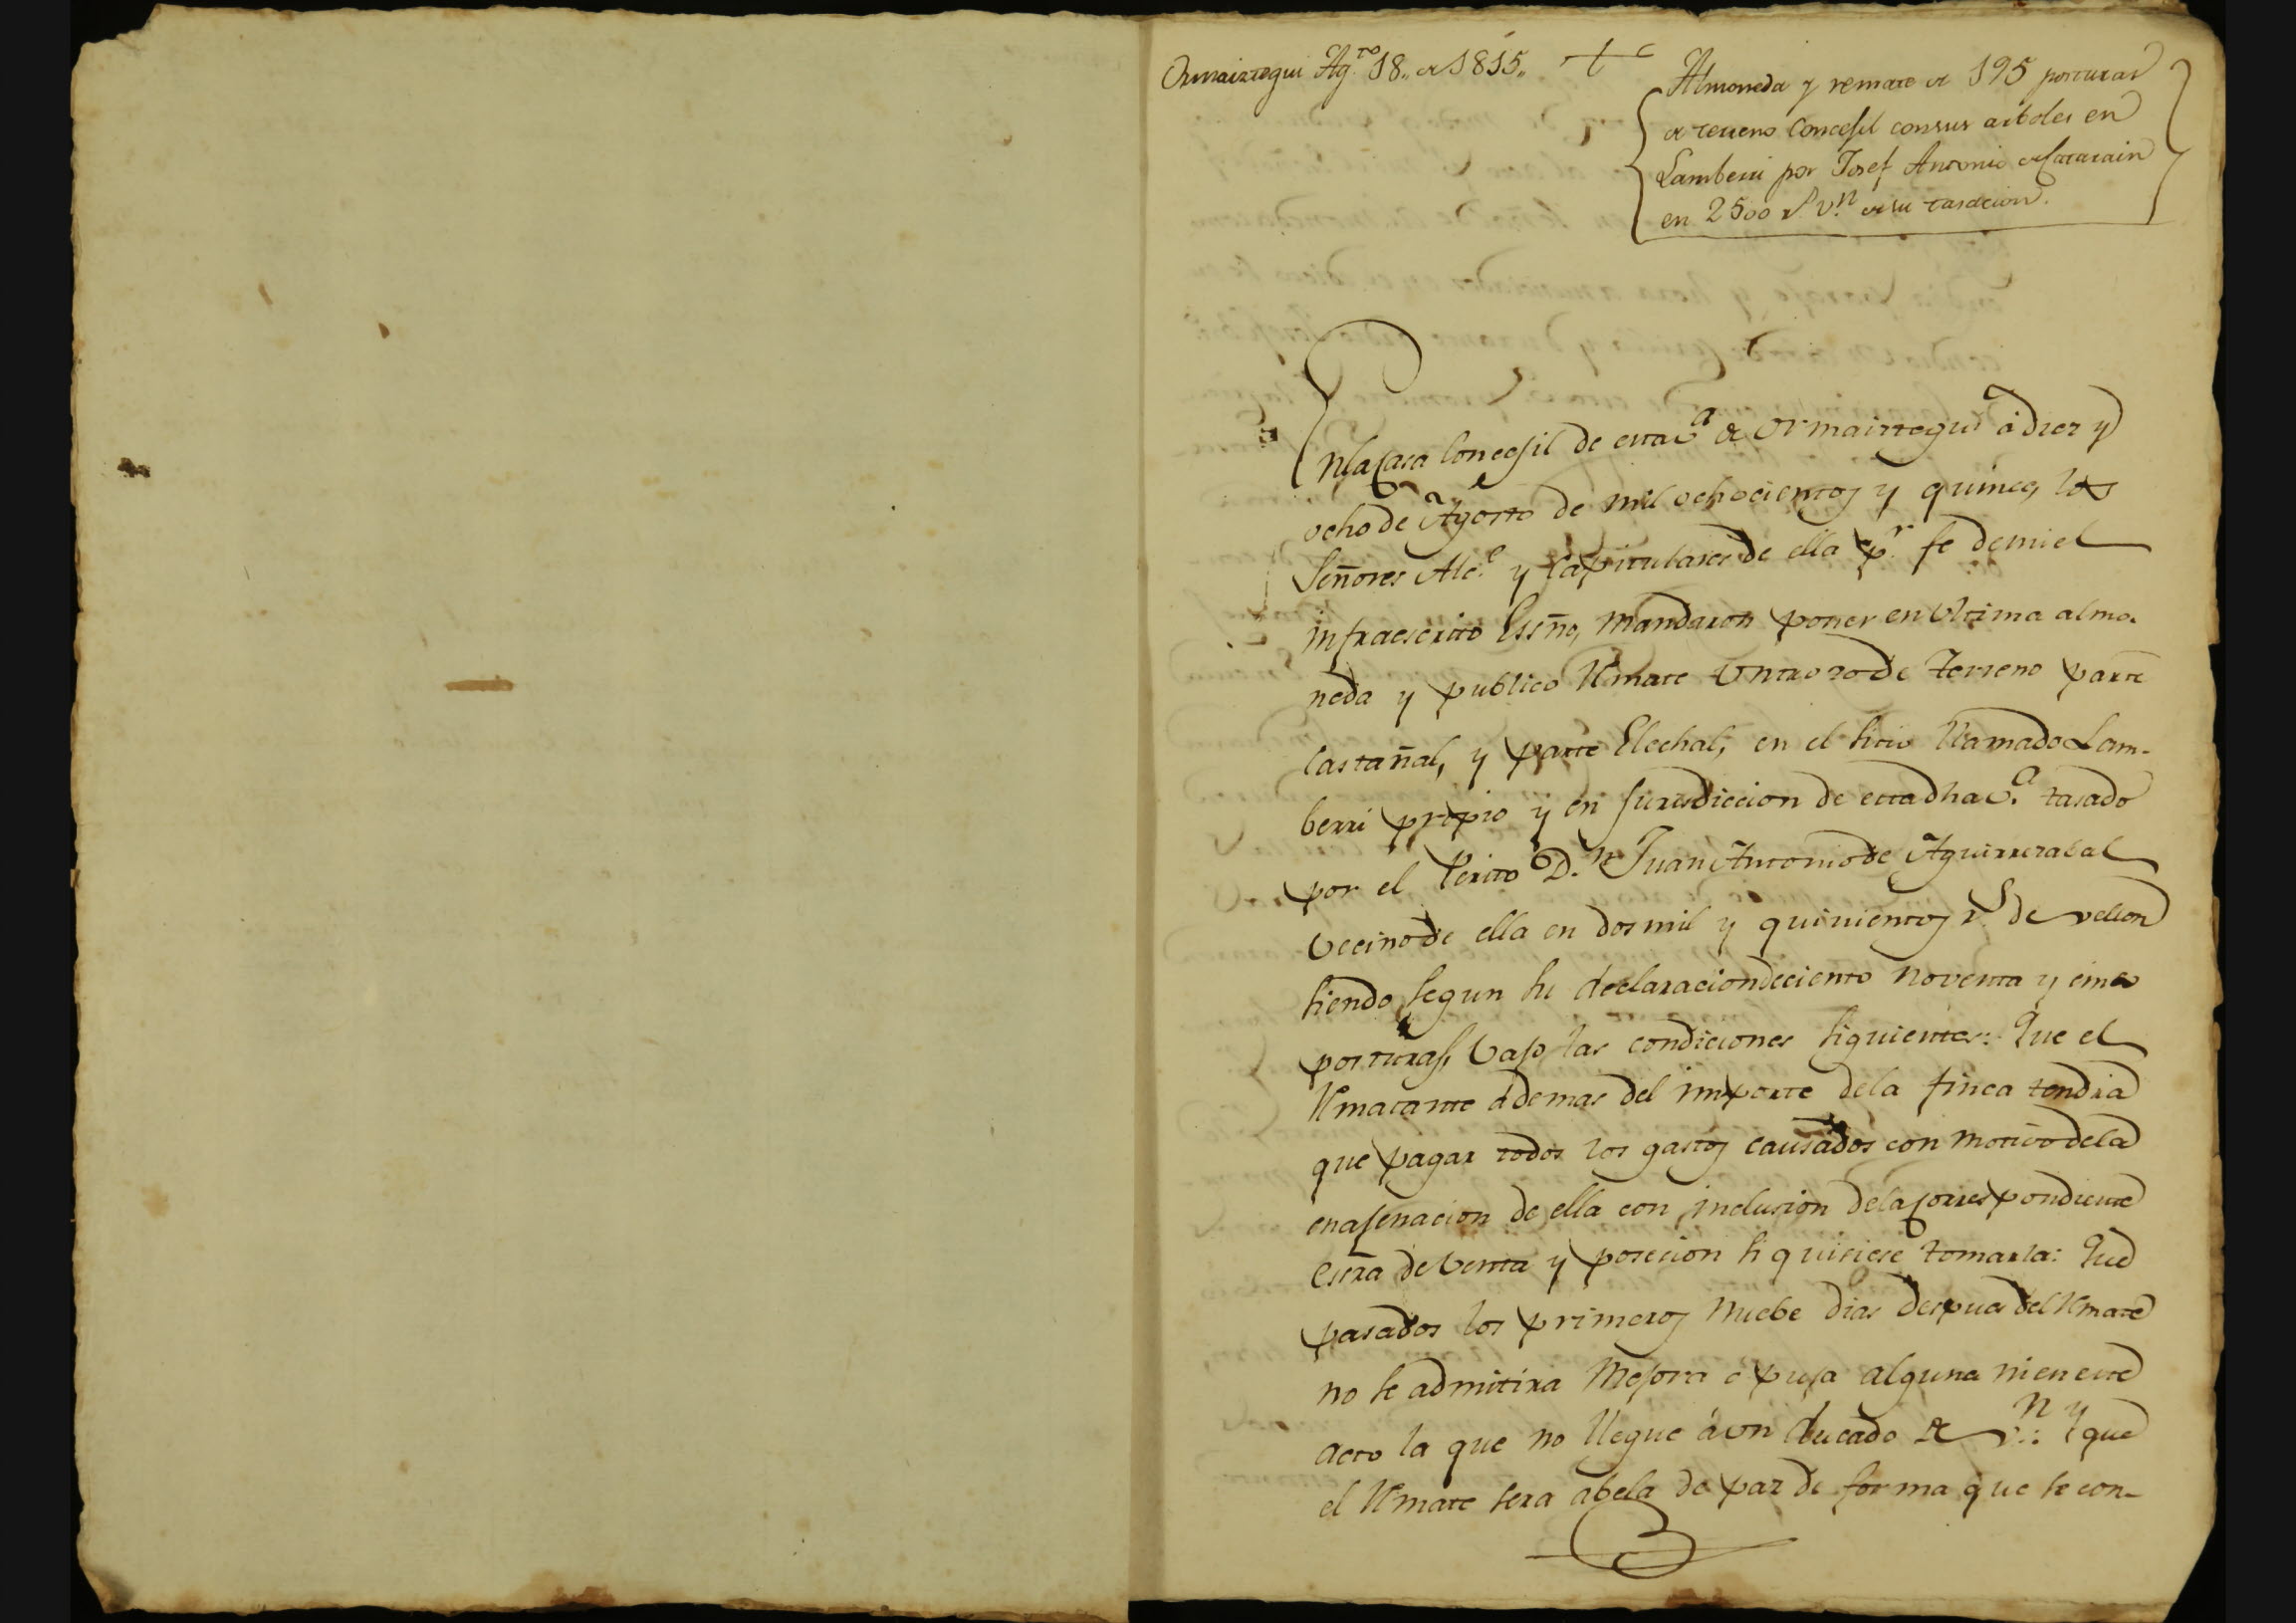 Ormaiztegui Ag.to 18,, de 1815,,
Almoneda y remate de 195 posturas
de terreno Concejil con sus arboles en
Lamberri por Josef Antonio de Catarain
en 2500 r.s v.n de su tasacion.
En la Casa Concejil de esta v.a de Ormaiztegui à diez y
ocho de Agosto de mil ochocientos y quince, los
Señores Alc.e y Capitulares de ella p.r fe de mi el
infraescrito Essño, mandaron poner en ultima almo-
neda y publico Remate un trozo de terreno parte
Castañal, y parte Elechal, en el sitio llamado Lam-
berri propio y en jurisdiccion de esta dha v.a tasado
por el Perito D.n Juan Antonio de Aguirrezabal
vecino de ella en dos mil y quinientos r.s de vellon
siendo segun su declaracion de ciento noventa y cinco
posturas, bajo las condiciones siguientes: Que el
Rematante ademas del importe de la finca tendria
que pagar todos los gastos causados con motivo de la
enajenacion de ella con inclusion de la correspondiente
Essra de venta y posecion si quisiese tomarla: Que
pasados los primeros nuebe dias despues del Remate
no se admitira Mejora o puja alguna ni en este
acto la que no llegue à un ducado de v.n: y que
el Remate sera abela de par de forma que se con-